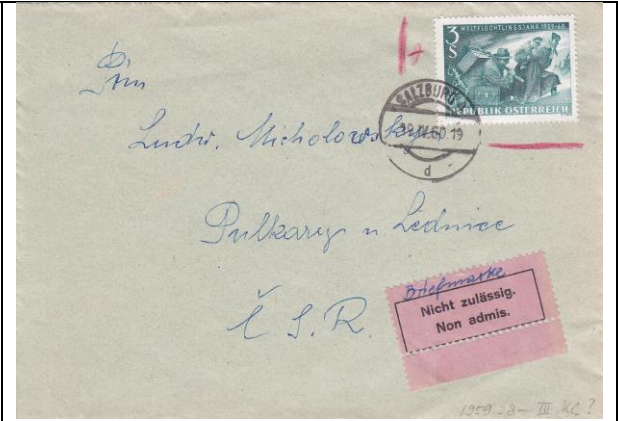 WELTFLÜCHTLINGSJAHR 1959-60
3
S
REPUBLIK ÖSTERREICH
SALZBURG
19
d
Ludw. Micholovsky
n Lednice
Č.S.R.
Briefmarke
Nicht zulässig.
Non admis.
1959 III Kč ?